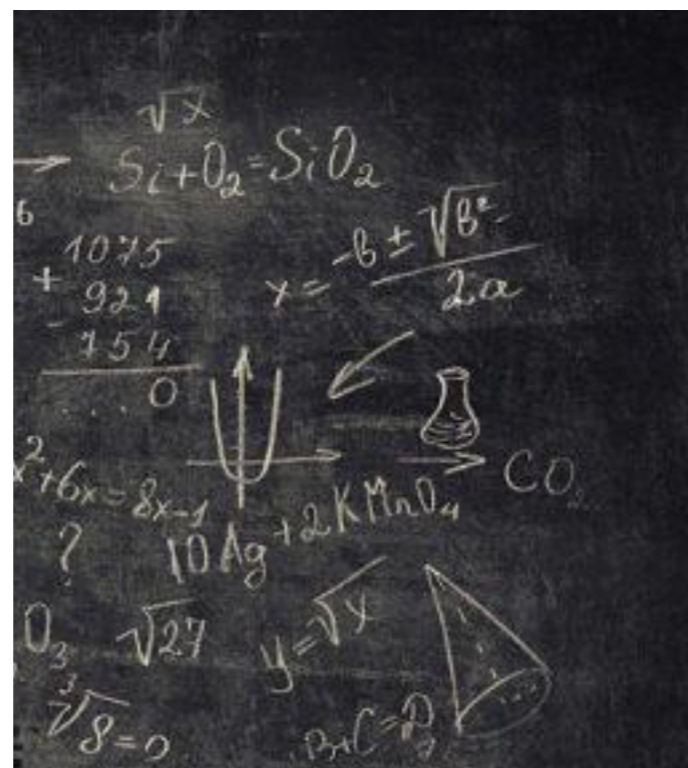 √x
Si+O₂=SiO₂
6
1075
+ 921
- 754
0
x = -b ± √b²- / 2a
x²+6x=8x-1
CO₂
?
10Ag+2KMnO₄
O₃
√27
y=√x
³√8=0
B+C=D